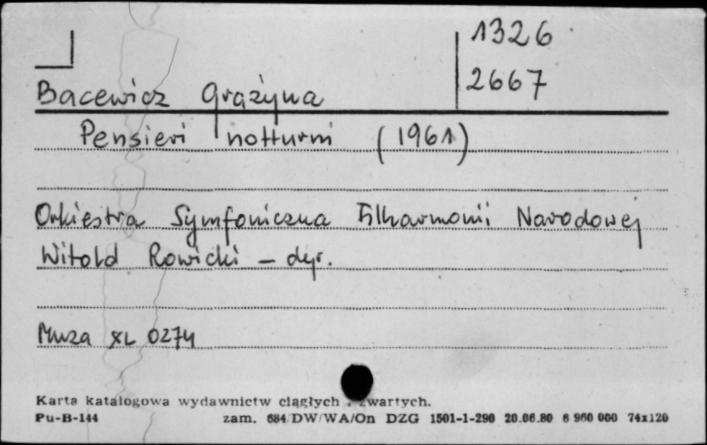 1326
2667
Bacewicz Grażyna
Pensieri notturni (1961)
Orkiestra Symfoniczna Filharmonii Narodowej
Witold Rowicki – dyr.
Muza XL 0274
Karta katalogowa wydawnictw ciągłych i zwartych.
Pu-B-144 zam. 684/DW/WA/On DZG 1501-1-290 20.06.80 6 960 000 74x120